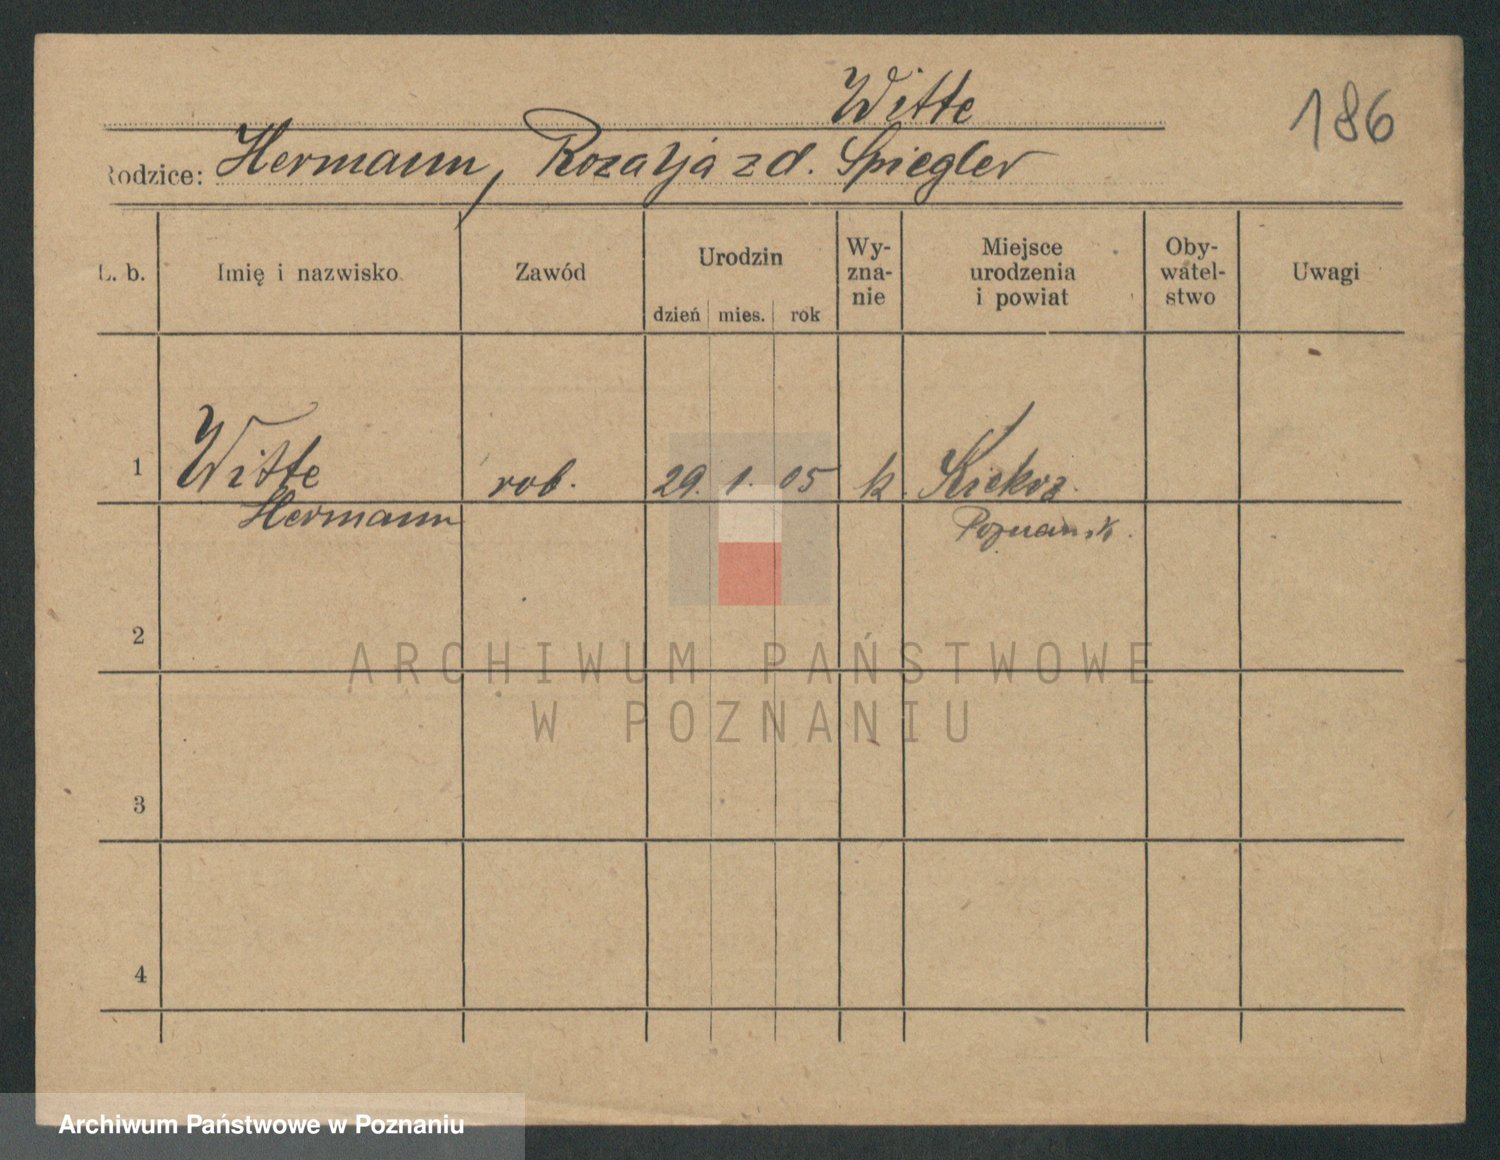 Witte
186
Rodzice: Hermann, Rozalja z d. Spiegler
L. b.
Imię i nazwisko
Zawód
Urodzin
dzień mies. rok
Wy-
zna-
nie
Miejsce
urodzenia
i powiat
Oby-
watel-
stwo
Uwagi
1 Witte rob. 29. 1. 05 k. Kiekrz.
Hermann Poznańsk.
2
3
4
ARCHIWUM PAŃSTWOWE
W POZNANIU
Archiwum Państwowe w Poznaniu